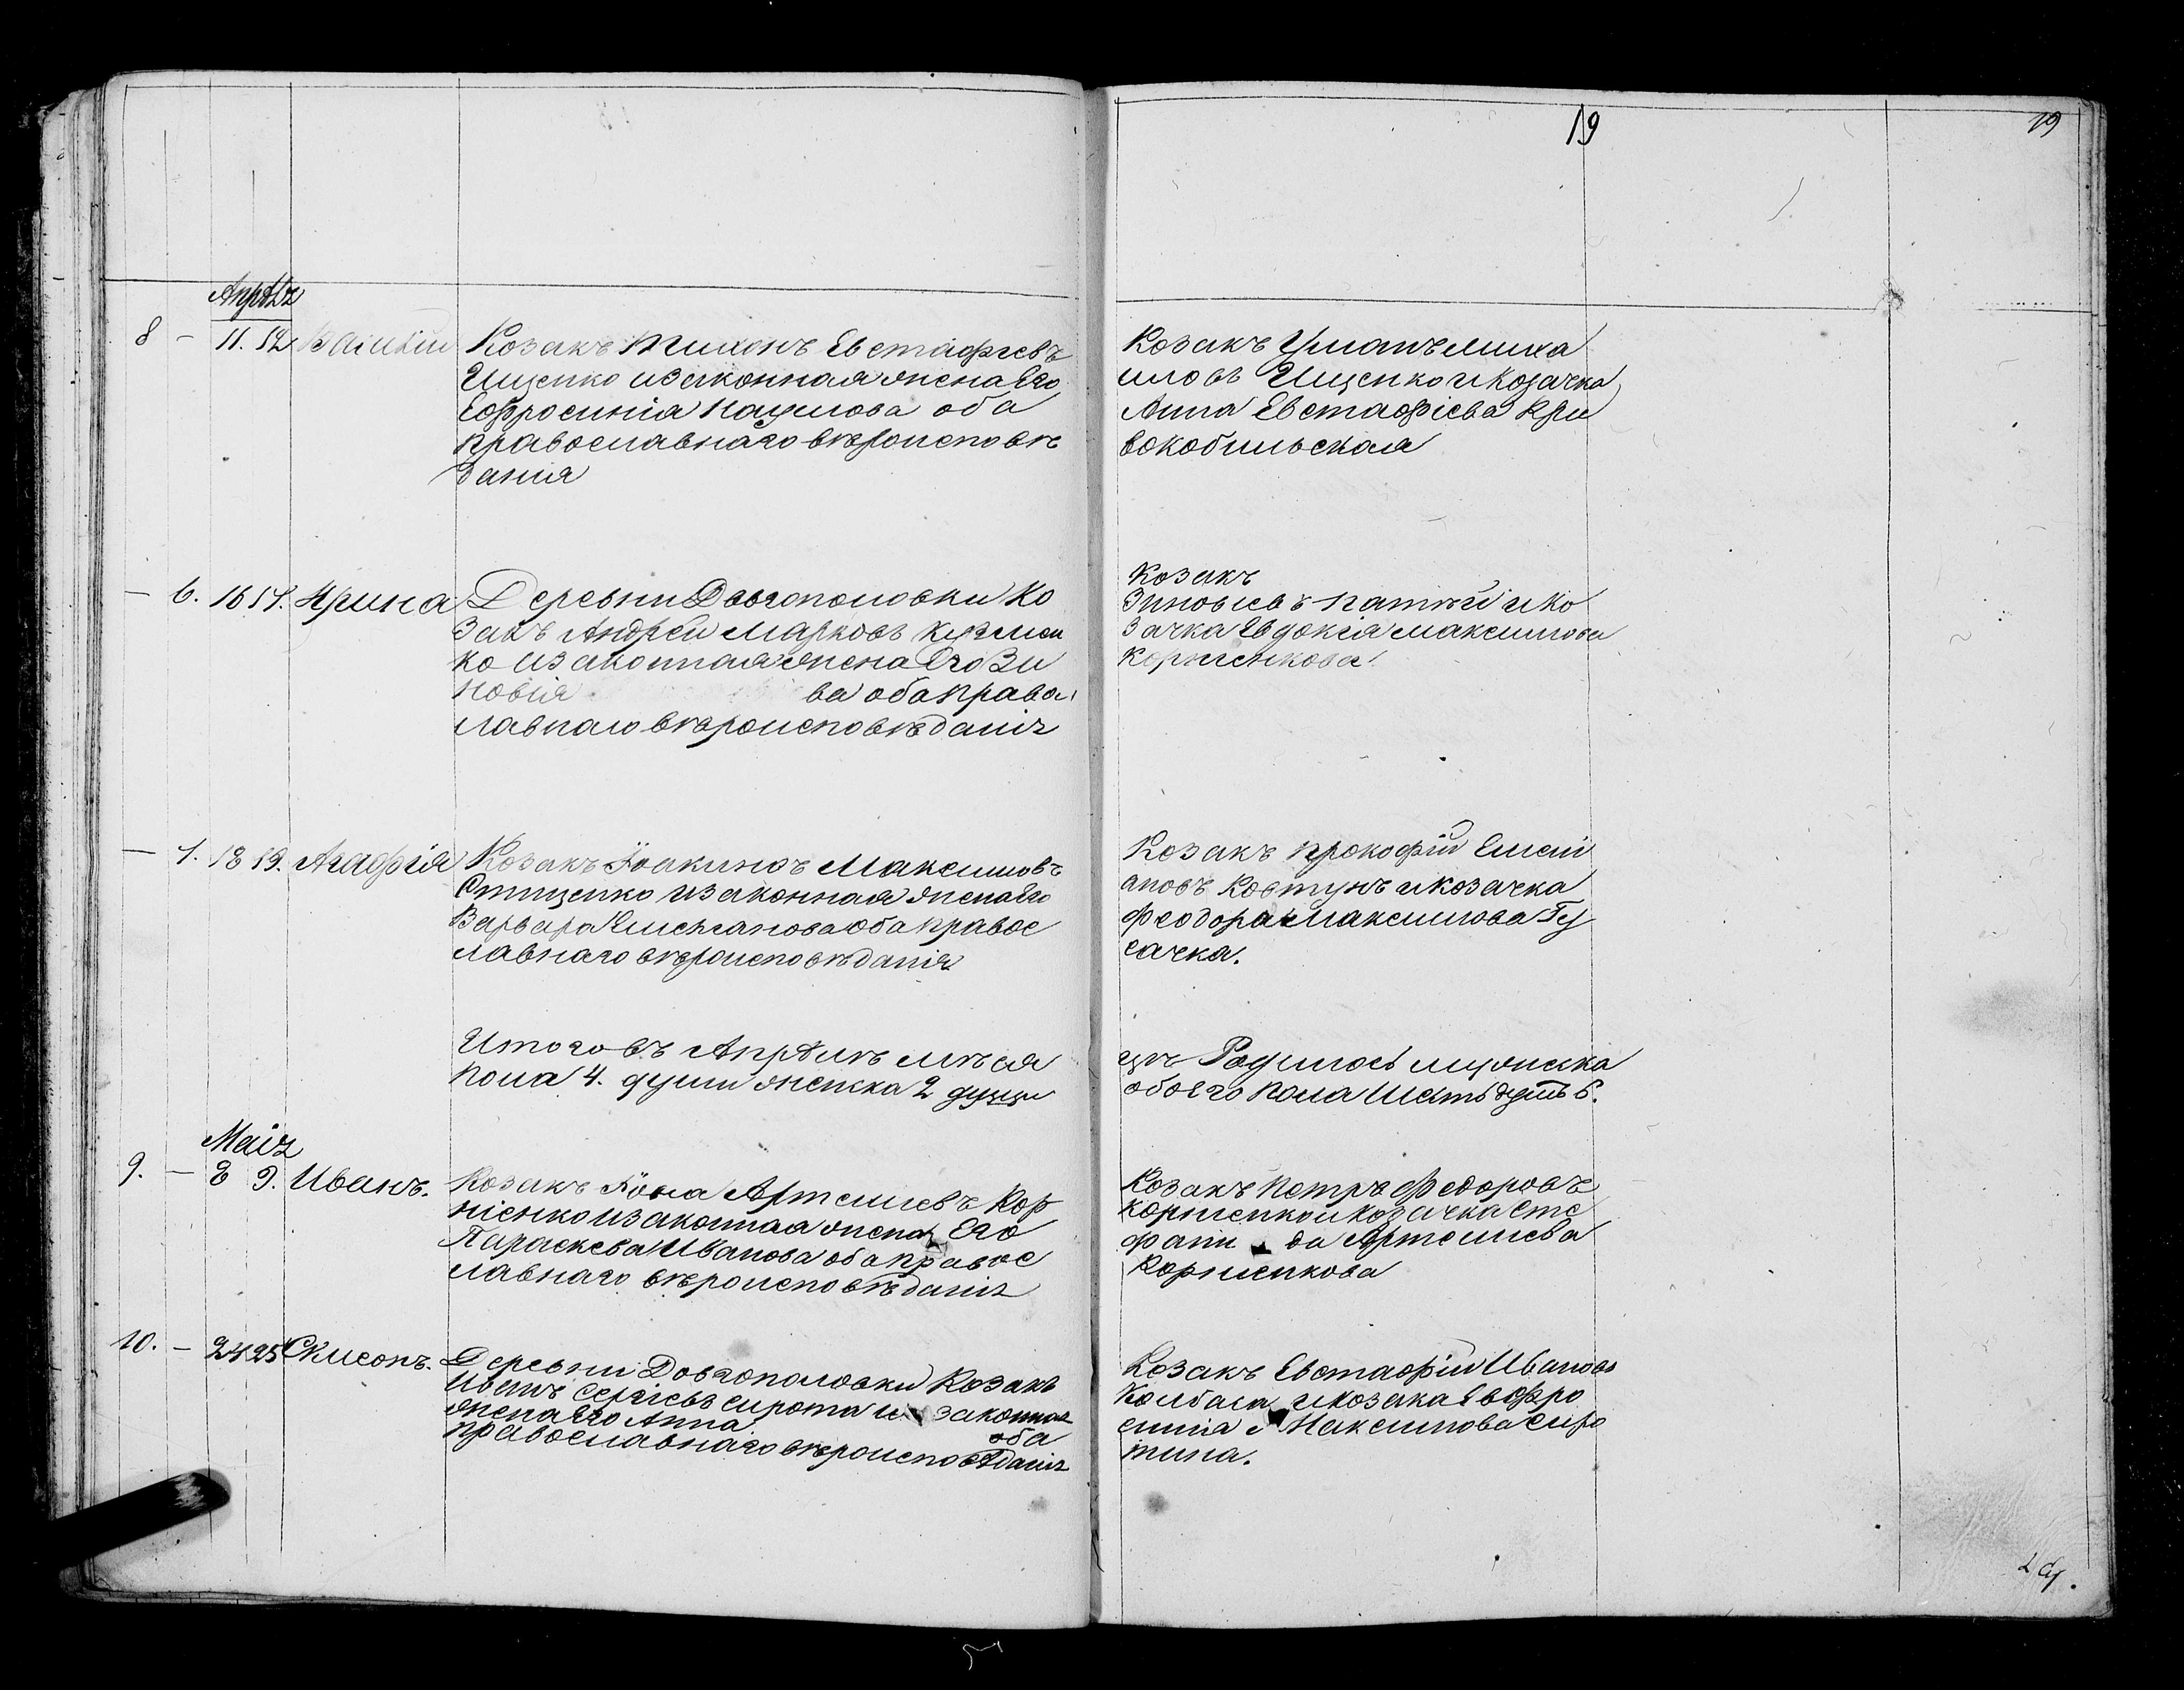 19
19
Апрѣль
8 – 11. 12 Василій Козакъ Тихонъ Евстафіевъ
Ищенко изаконная жена Его
Ефросинія Наумова оба
православнаго вѣроисповѣ
данія
Козакъ Ульанъ Миха
иловъ Ищенко икозачка
Анна Евстафіева Кри
вокобильская
– 6. 16 17. Ирина Деревни Довгополовки Ко
закъ Андрей Марковъ Кузмен
ко изаконная жена Его Зи
новія ва оба права
лавнаго вѣроисповѣданія
Козакъ
Зиновіевъ ико
зачка Евдокія Максимова
Корніенкова
– 7. 18 19. Агафія Козакъ Іоакимъ Максимовъ
Стищенко изаконная жена Его
Варвара Емельянова оба правос
лавнаго вѣроисповѣданія
Козакъ Прокофій Емели
ановъ Ковтунъ икозачка
Феодора Максимова Гу
сачка.
Итого въ Апрѣлѣ мѣся
цѣ Родилось мужеска
пола 4. души женска 2 души
обоего пола шесть душъ 6.
Маія
9. – 8 9. Иванъ. Козакъ Іона Артемиевъ Кор
ніенко изаконная жена Его
Параскева Иванова оба правос
лавнаго вѣроисповѣданія
Козакъ Петръ Федоровъ
Корніенко икозачка Сте
фани да Артемиева
Корніенкова
10. – 24 25 Деревни Довгополовки Козакъ
Иванъ Сергіевъ Сирота и законная
жена Его Анна оба
православнаго вѣроисповѣданія
Козакъ Евстафій Ивановъ
Колбаса икозака Евфро
синія Максимова Сиро
тина.